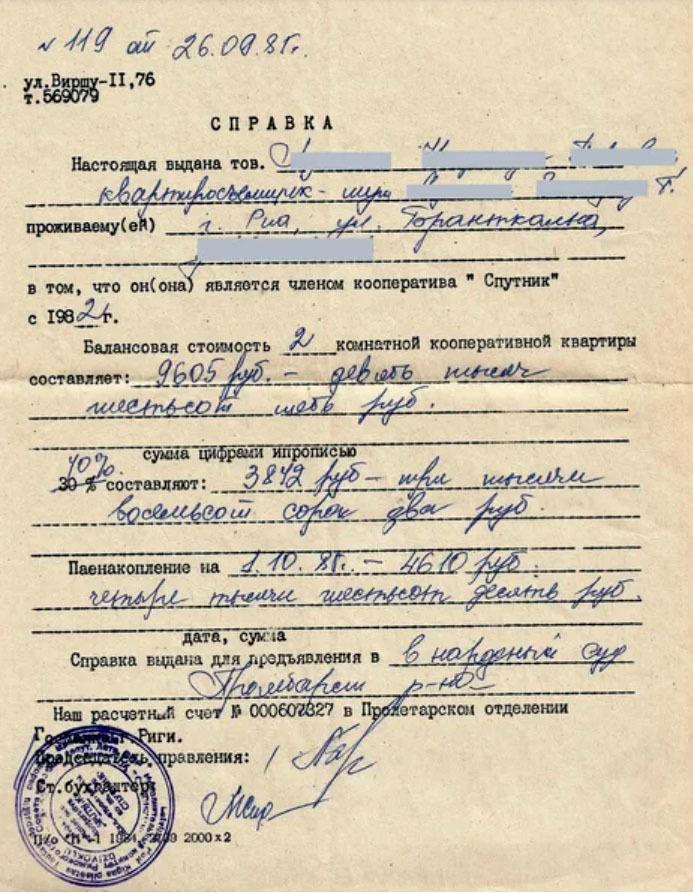 № 119 от 26.09.85г.
ул.Виршу-II,76
т.569079
СПРАВКА
Настоящая выдана тов.
квартиросъемщик-
проживаему(ей) г. Рига, ул.
в том, что он(она) является членом кооператива " Спутник"
с 1982 г.
Балансовая стоимость 2 комнатной кооперативной квартиры
составляет: 9605 руб. - девять тысяч
шестьсот пять руб.
сумма цифрами ипрописью
40% 30 % составляют: 3842 руб - три тысячи
восемьсот сорок два руб
Паенакопление на 1.10.85г. - 4610 руб.
четыре тысячи шестьсот десять руб.
дата, сумма
Справка выдана для предъявления в в народный суд
р-на
Наш расчетный счет № 000607827 в Пролетарском отделении
Госбанка г. Риги.
Председатель правления:
Ст.бухгалтер
2000x2